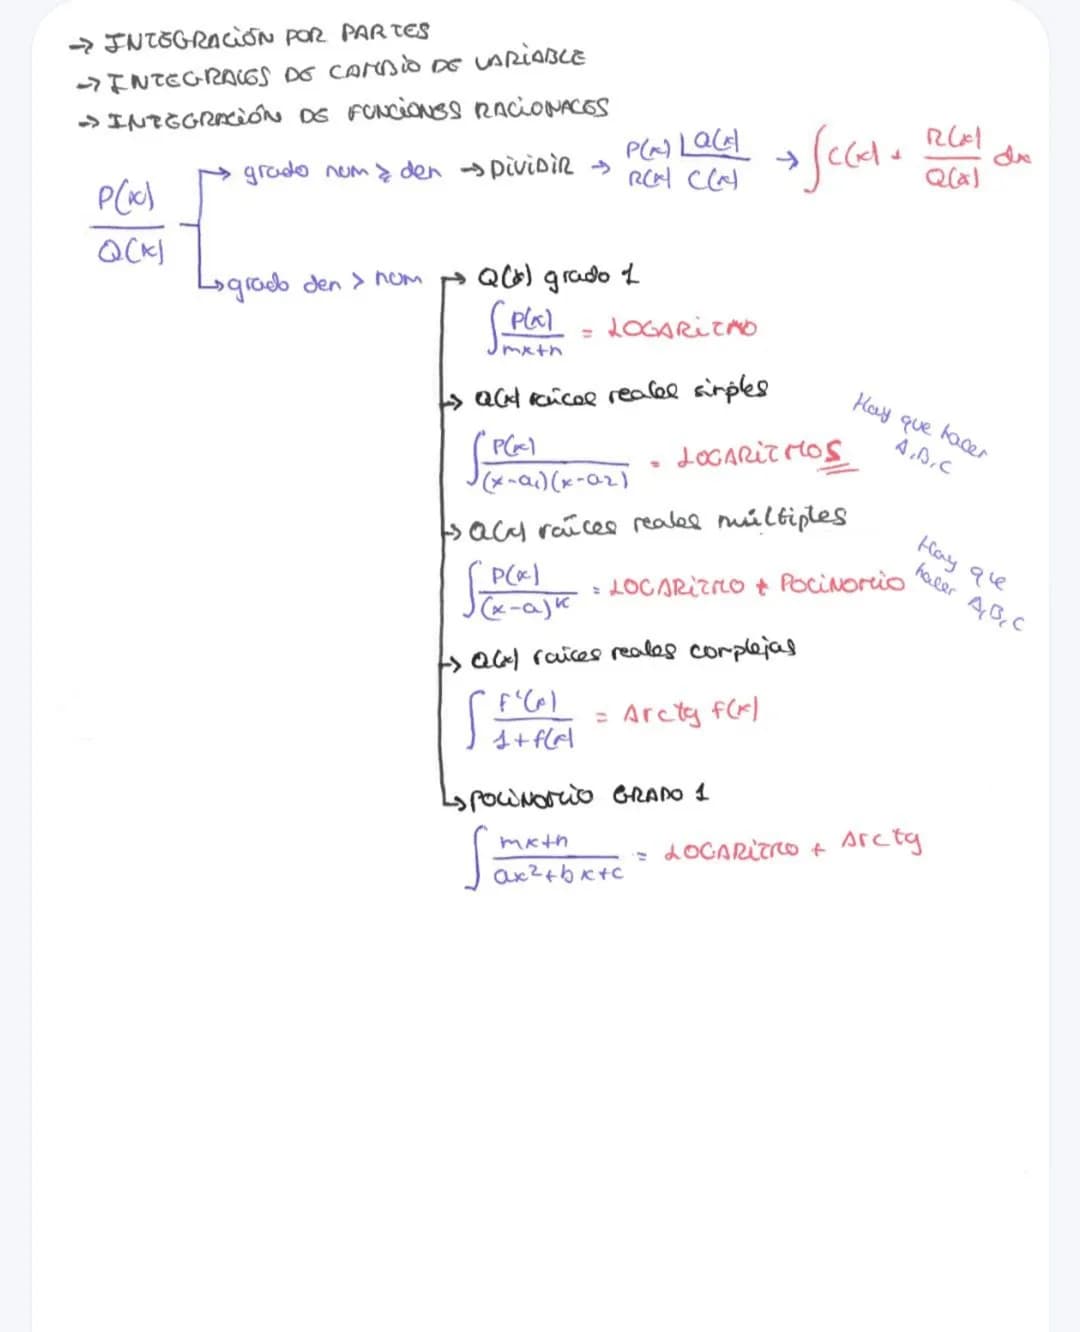 → INTEGRACIÓN POR PARTES
→ INTEGRALES DE CAMBIO DE VARIABLE
→ INTEGRACIÓN DE FUNCIONES RACIONALES
P(x)/Q(x)
→ grado num ≥ den → DIVIDIR → P(x) | Q(x) R(x) C(x) → ∫ C(x) + R(x)/Q(x) dx
→ grado den > num
→ Q(x) grado 1
∫ P(x)/mx+n = LOGARITMO
→ Q(x) raíces reales simples
∫ P(x)/(x-a₁)(x-a₂) = LOGARITMOS
Hay que hacer
A,B,C
→ Q(x) raíces reales múltiples
∫ P(x)/(x-a)ᵏ = LOGARITMO + POLINOMIO
Hay que
hacer A,B,C
→ Q(x) raíces reales complejas
∫ f'(x)/1+f(x) = Arctg f(x)
→ POLINOMIO GRADO 1
∫ mx+n/ax²+bx+c = LOGARITMO + Arctg